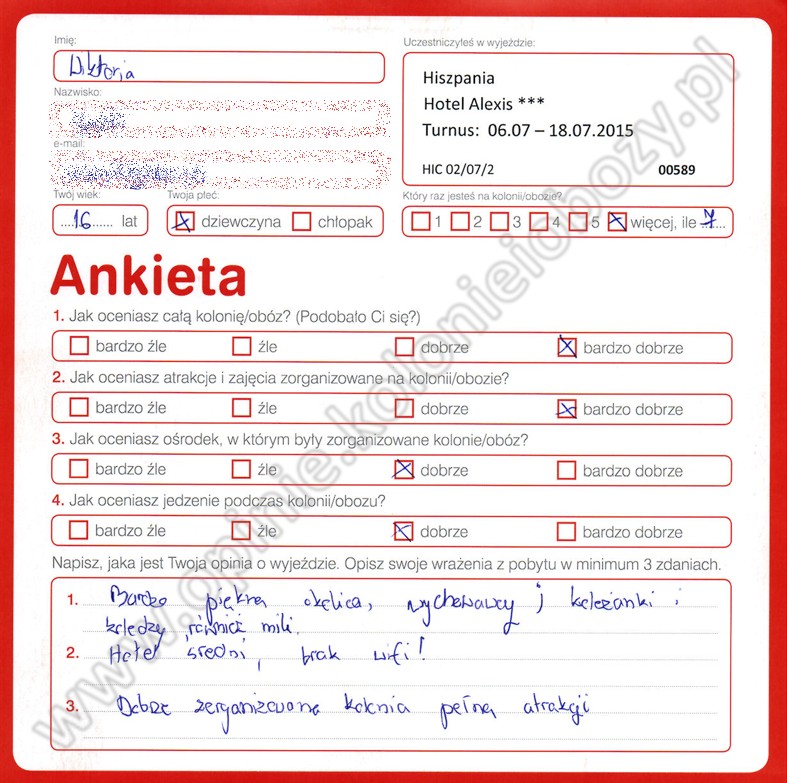 Imię:
Wiktoria
Uczestniczyłeś w wyjeździe:
Hiszpania
Hotel Alexis ***
Turnus: 06.07 – 18.07.2015
HIC 02/07/2
00589
Nazwisko:
e-mail:
Twój wiek:
16 lat
Twoja płeć:
dziewczyna chłopak
Który raz jesteś na kolonii/obozie?
1 2 3 4 5 więcej, ile 7
Ankieta
1. Jak oceniasz całą kolonię/obóz? (Podobało Ci się?)
bardzo źle źle dobrze bardzo dobrze
2. Jak oceniasz atrakcje i zajęcia zorganizowane na kolonii/obozie?
bardzo źle źle dobrze bardzo dobrze
3. Jak oceniasz ośrodek, w którym były zorganizowane kolonie/obóz?
bardzo źle źle dobrze bardzo dobrze
4. Jak oceniasz jedzenie podczas kolonii/obozu?
bardzo źle źle dobrze bardzo dobrze
Napisz, jaka jest Twoja opinia o wyjeździe. Opisz swoje wrażenia z pobytu w minimum 3 zdaniach.
1. Bardzo piękna okolica, wychowawcy i koleżanki i
koledzy również mili.
2. Hotel średni, brak wifi!
3. Dobrze zorganizowana kolonia pełna atrakcji
www.opinie.kolonieiobozy.pl